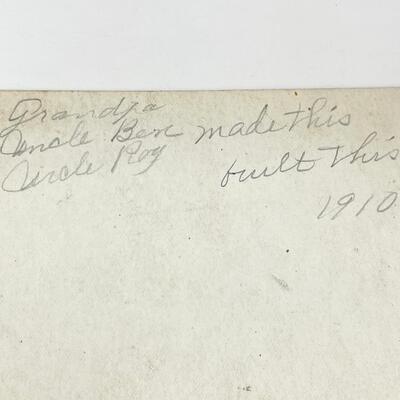 Grandpa
Uncle Ben made this
Uncle Roy built this
1910